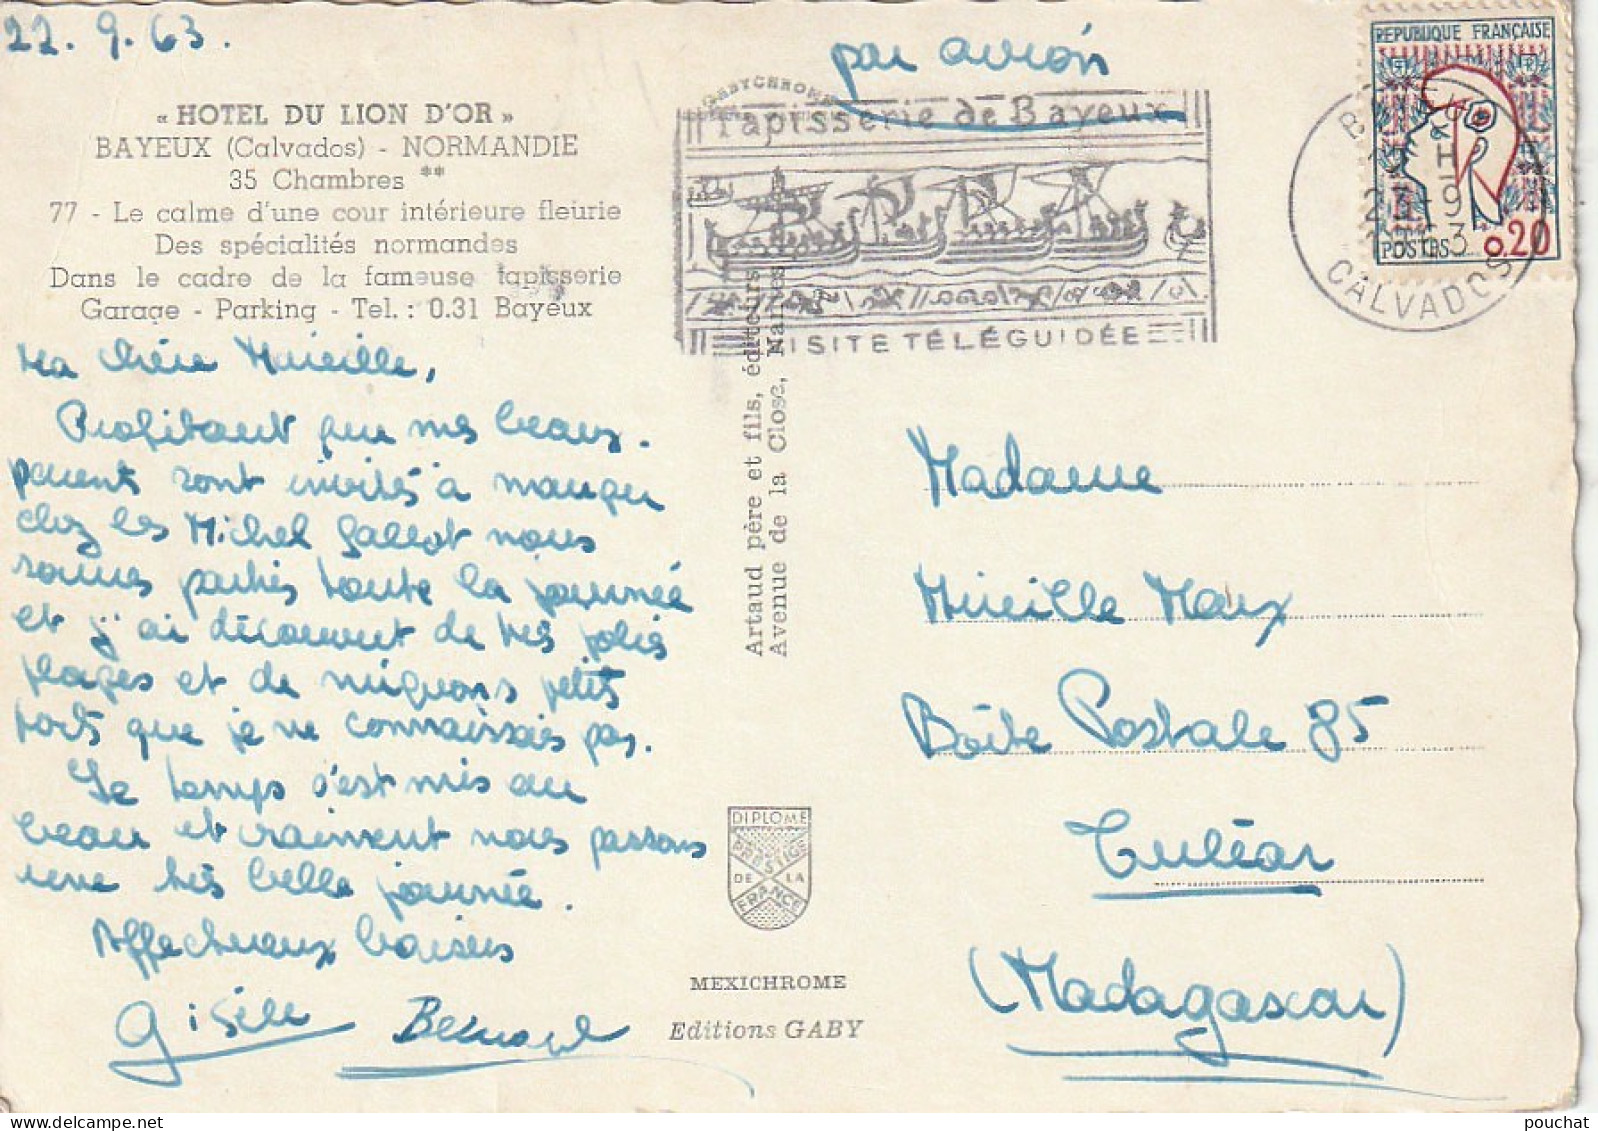 22.9.63.
par avion
« HOTEL DU LION D'OR »
BAYEUX (Calvados) - NORMANDIE
35 Chambres **
77 - Le calme d'une cour intérieure fleurie
Des spécialités normandes
Dans le cadre de la fameuse tapisserie
Garage - Parking - Tel. : 0.31 Bayeux
Ma chère Mireille,
Profitant que mes beaux-
parents sont invités à manger
chez les Michel Gallot nous
sommes partis toute la journée
et j'ai découvert de très jolies
plages et de mignons petits
ports que je ne connaissais pas.
Le temps s'est mis au
beau et vraiment nous passons
une très belle journée.
Affectueux baisers
Gisèle Bernard
Tapisserie de Bayeux
VISITE TÉLÉGUIDÉE
REPUBLIQUE FRANÇAISE
POSTES 0,20
CALVADOS
Artaud père et fils, éditeurs
Avenue de la Close, Nantes
DIPLOME
PRESTIGE
DE LA
FRANCE
MEXICHROME
Editions GABY
Madame
Mireille Marx
Boîte Postale 85
Tuléar
(Madagascar)
pouchat